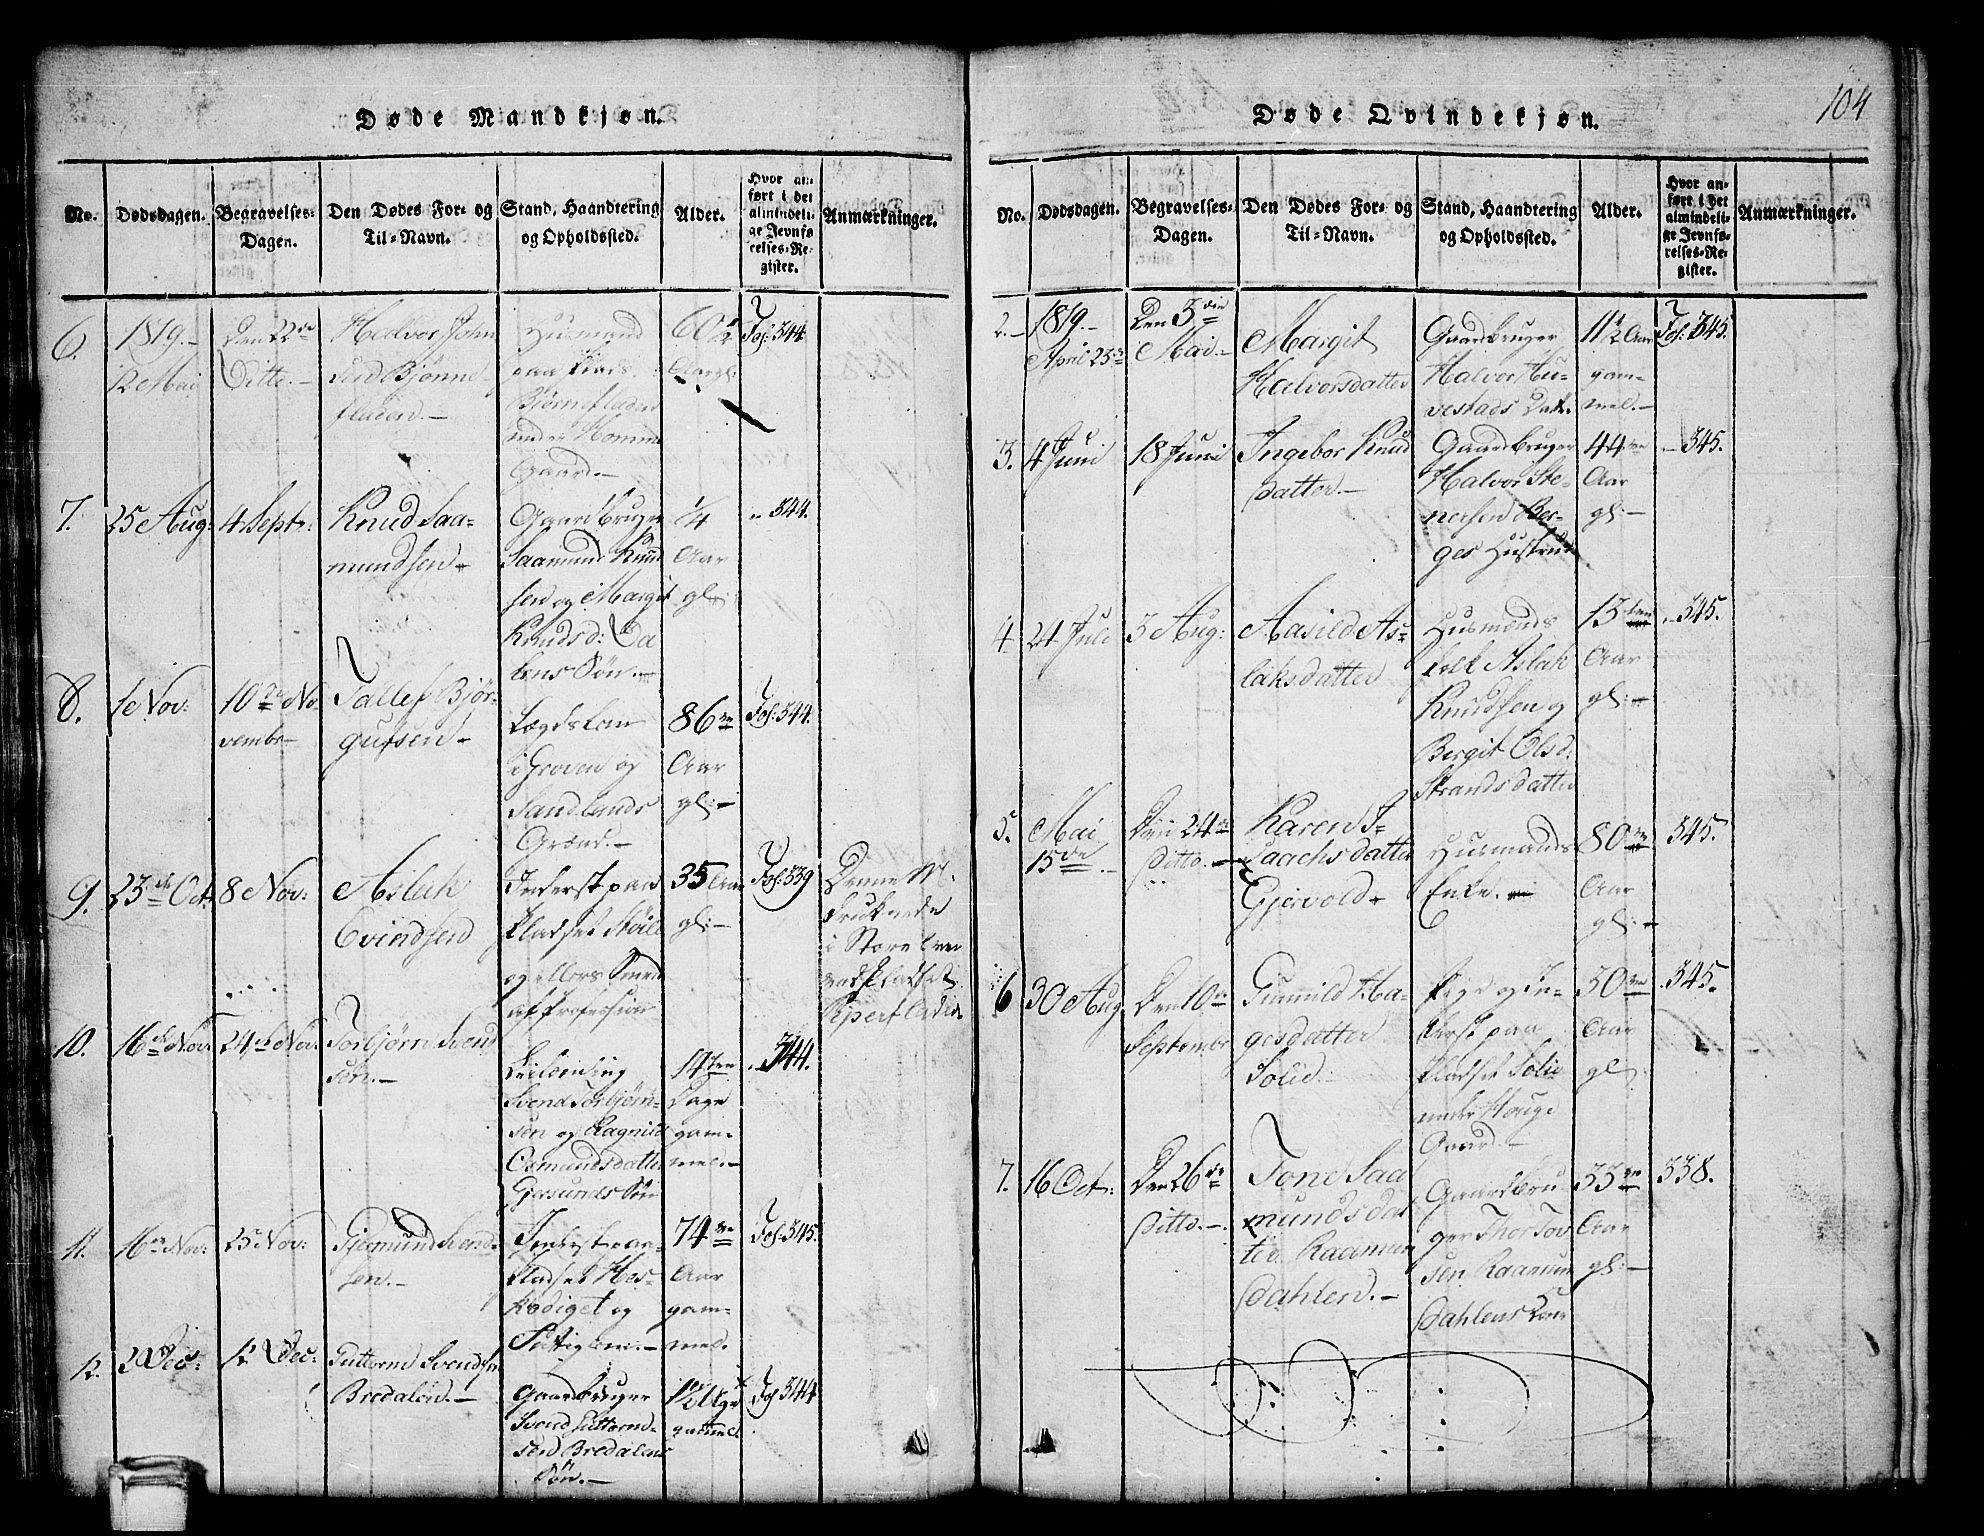 Døde Mandkjøn.
No.
Dødsdagen.
Begravelses-
Dagen.
Den Dødes For- og
Til-Navn.
Stand, Haandtering
og Opholdssted.
Alder.
Hvor an-
ført i det
almindeli-
ge Jevnfø-
relses-Re-
gister.
Anmærkninger.
6.
1819.-
12 Mai
Den 22de
Ditto.-
Halvor John
sen Bjønne-
fladen.-
Husmand
paa Plads.
Bjørnefladen
under Homme
Gaard.-
60 1/2
Aar gl:
Fol: 344.
7.
25 Aug:
4 Sept:
Knud Saa-
mundsen-
Gaardbruger
Saamund Knud
sen og Margit
Knudsd: Da
lens Søn.-
1/4
Aar
gl:
" 344.
8.
1 Nov:
10de No-
vembr-
Tallef Bjør-
gufsen-
Lægdslem
i Groven og
Sandlands
Grænd.-
86
Aar
gl:-
Fol: 344.
9.
23de Oct:
8 Nov:
Aslak
Evindsen
Inderst paa
Pladset Støile
og ellers Smed
af Profession
35 Aar
gl:-
Fol: 339
Denne M.
druknede
i Store
10.
16de Nov:
24de Nov:
Torbjørn Svend
sen.-
Leilænding
Svend Torbjørn-
sen og Ragnild
Osmundsdatter
Gjersunds Søn
14ten
Dage
gam-
mel.-
" 344.
11.
16 Nov:
25 Nov:
Gjermund Svend-
sen.-
Inderst paa
Pladset Hes-
kodiget og
Fattiglem.-
74
Aar
gam-
mel.
Fol: 345.
12.
2 Dec:
12 Dec:
Guttorm Svendsen
Bredalen.-
Gaardbruger
Svend Guttorm-
sen Bredalens
Søn.-
1 1/2 Uge
gammel
Fol 344
Døde Qvindekjøn.
104
No.
Dødsdagen.
Begravelses-
Dagen.
Den Dødes For- og
Til-Navn.
Stand, Haandtering
og Opholdssted.
Alder.
Hvor an-
ført i det
almindeli-
ge Jevnfø-
relses-Re-
gister.
Anmærkninger.
2.-
1819.-
April 23
Den 3die
Mai.-
Margit
Halvorsdatter
Gaardbruger
Halvor Hu-
vestads Dat.
11 1/2 Aar
gam-
mel.-
Fol: 345.
3.
4 Juni
18 Juni
Ingebor Knud
Datter.-
Gaardbruger
Halvor Ste-
nersen Ber-
ges Hustrue
44
Aar
gl:-
- 345.
4
24 Juli
3 Aug:
Aasild As-
laksdatter
Husmands
folk Aslak
Knudsen og
Bergit Olsd:
Strands datter
13ten
Aar
gl:-
" 345.
5.
Mai
15de.-
Den 24de
Ditto.-
Karen I-
saachsdatter
Gjervold-
Husmands
Enke.-
80
Aar
gl:-
345.
6
30 Aug
Den 10de
Septembr
Gunnild Ha-
gesdatter
Solie.
Pige og In-
derst paa
Pladset Solie
under Houge
Gaard.-
50
Aar
gl
345.
7.
16 Oct:
Den 26de
Ditto.-
Tone Saa
munds dat
ter. Raamun
Dahlen.-
Gaardbru
ger Thor Tov
sen Raamun
Dahlens Kone
33
Aar
gl:-
338.